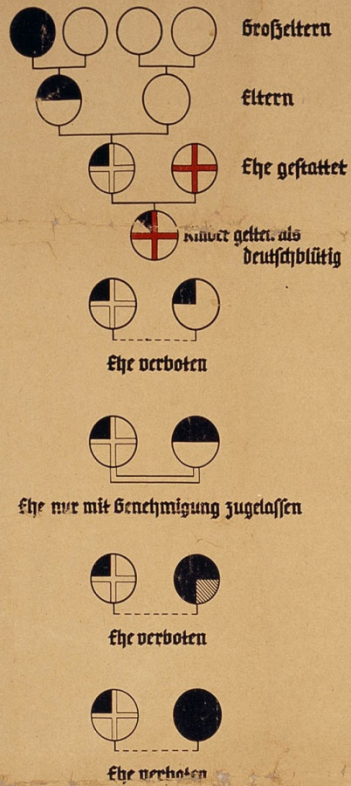 Großeltern
Eltern
Ehe gestattet
Kinder gelten als
deutschblütig
Ehe verboten
Ehe nur mit Genehmigung zugelassen
Ehe verboten
Ehe verboten